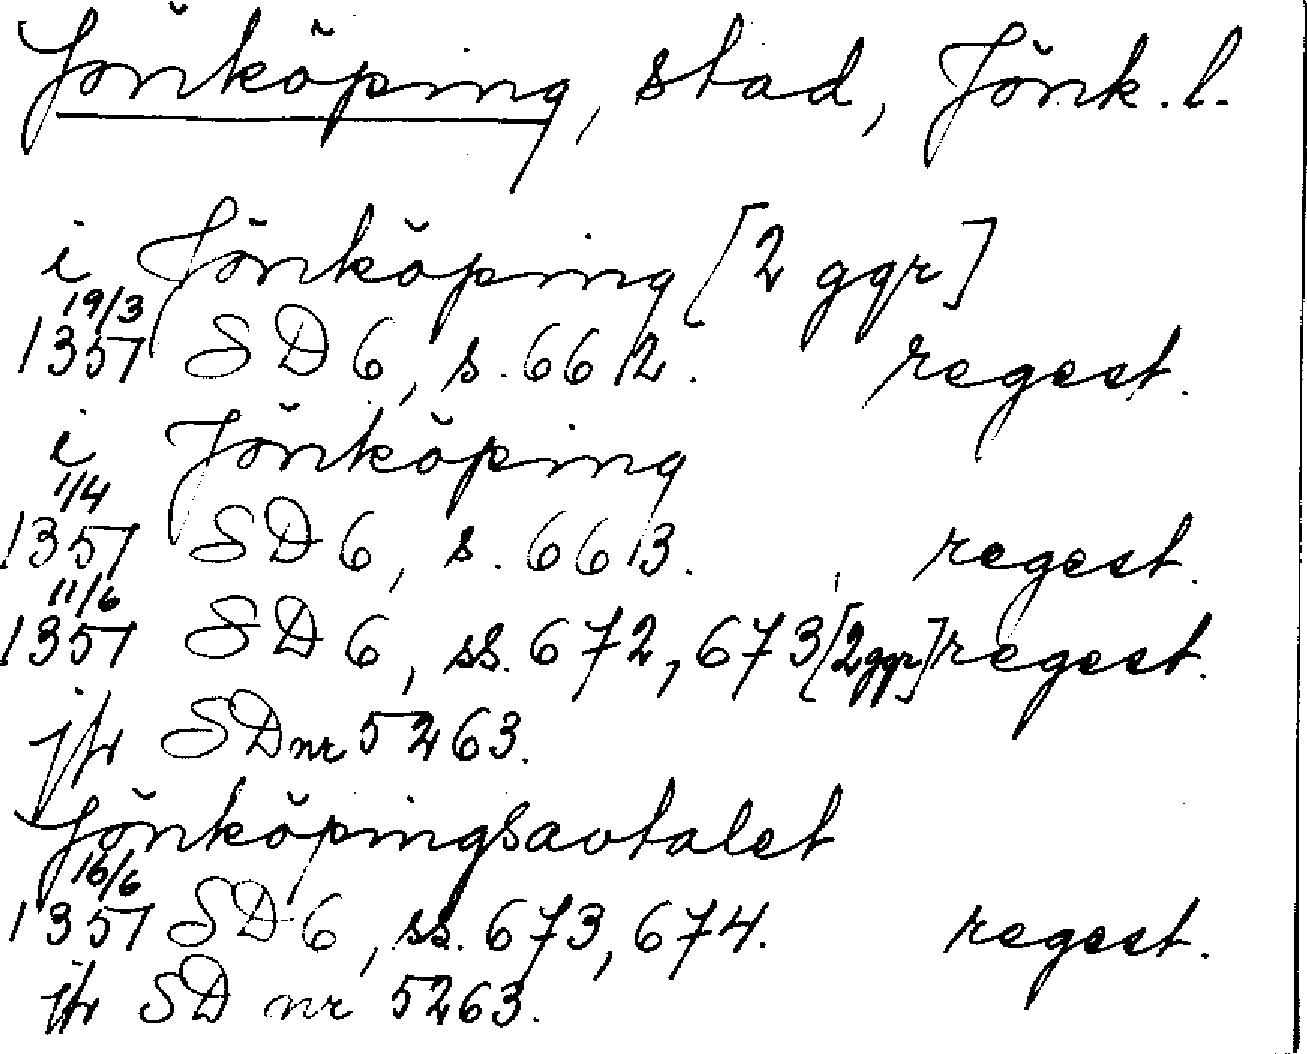 Jönköping, stad, Jönk. l.
i Jönköping [2 ggr]
19/3
1357 SD 6, s. 662. regest.
i Jönköping
1/4
1357 SD 6, s. 663. regest.
11/6
1357 SD 6, ss. 672, 673 [2 ggr] regest.
jfr SD nr 5263.
Jönköpingsavtalet
16/6
1357 SD 6, ss. 673, 674. regest.
jfr SD nr 5263.